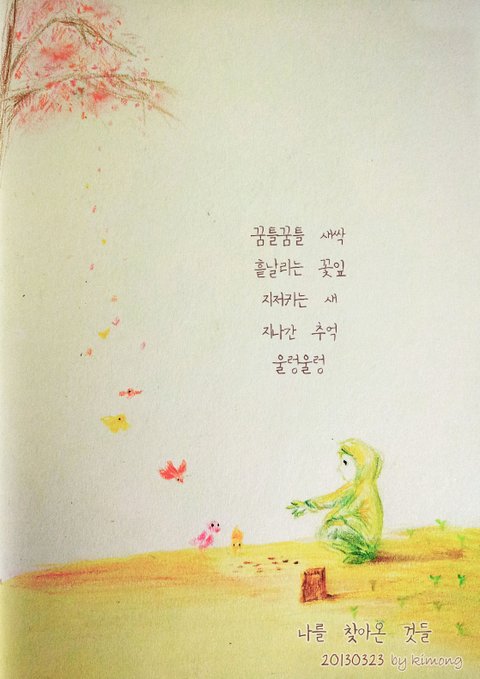 꿈틀꿈틀 새싹
흩날리는 꽃잎
지저귀는 새
지나간 추억
울렁울렁
나를 찾아온 것들
20130323 by kimong